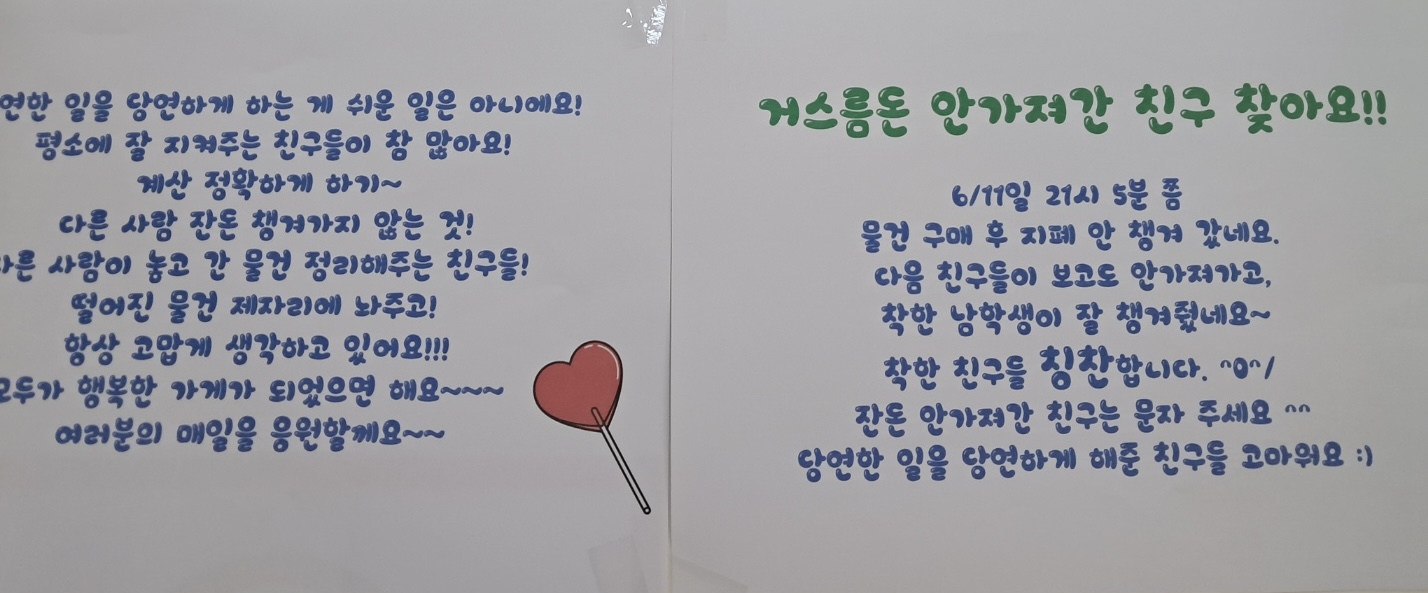 연한 일을 당연하게 하는 게 쉬운 일은 아니에요!
평소에 잘 지켜주는 친구들이 참 많아요!
계산 정확하게 하기~
다른 사람 잔돈 챙겨가지 않는 것!
다른 사람이 놓고 간 물건 정리해주는 친구들!
떨어진 물건 제자리에 놔주고!
항상 고맙게 생각하고 있어요!!!
모두가 행복한 가게가 되었으면 해요~~~
여러분의 매일을 응원할께요~~
거스름돈 안가져간 친구 찾아요!!
6/11일 21시 5분 쯤
물건 구매 후 지폐 안 챙겨 갔네요.
다음 친구들이 보고도 안가져가고,
착한 남학생이 잘 챙겨줬네요~
착한 친구들 칭찬합니다. ^0^/
잔돈 안가져간 친구는 문자 주세요 ^^
당연한 일을 당연하게 해준 친구들 고마워요 :)